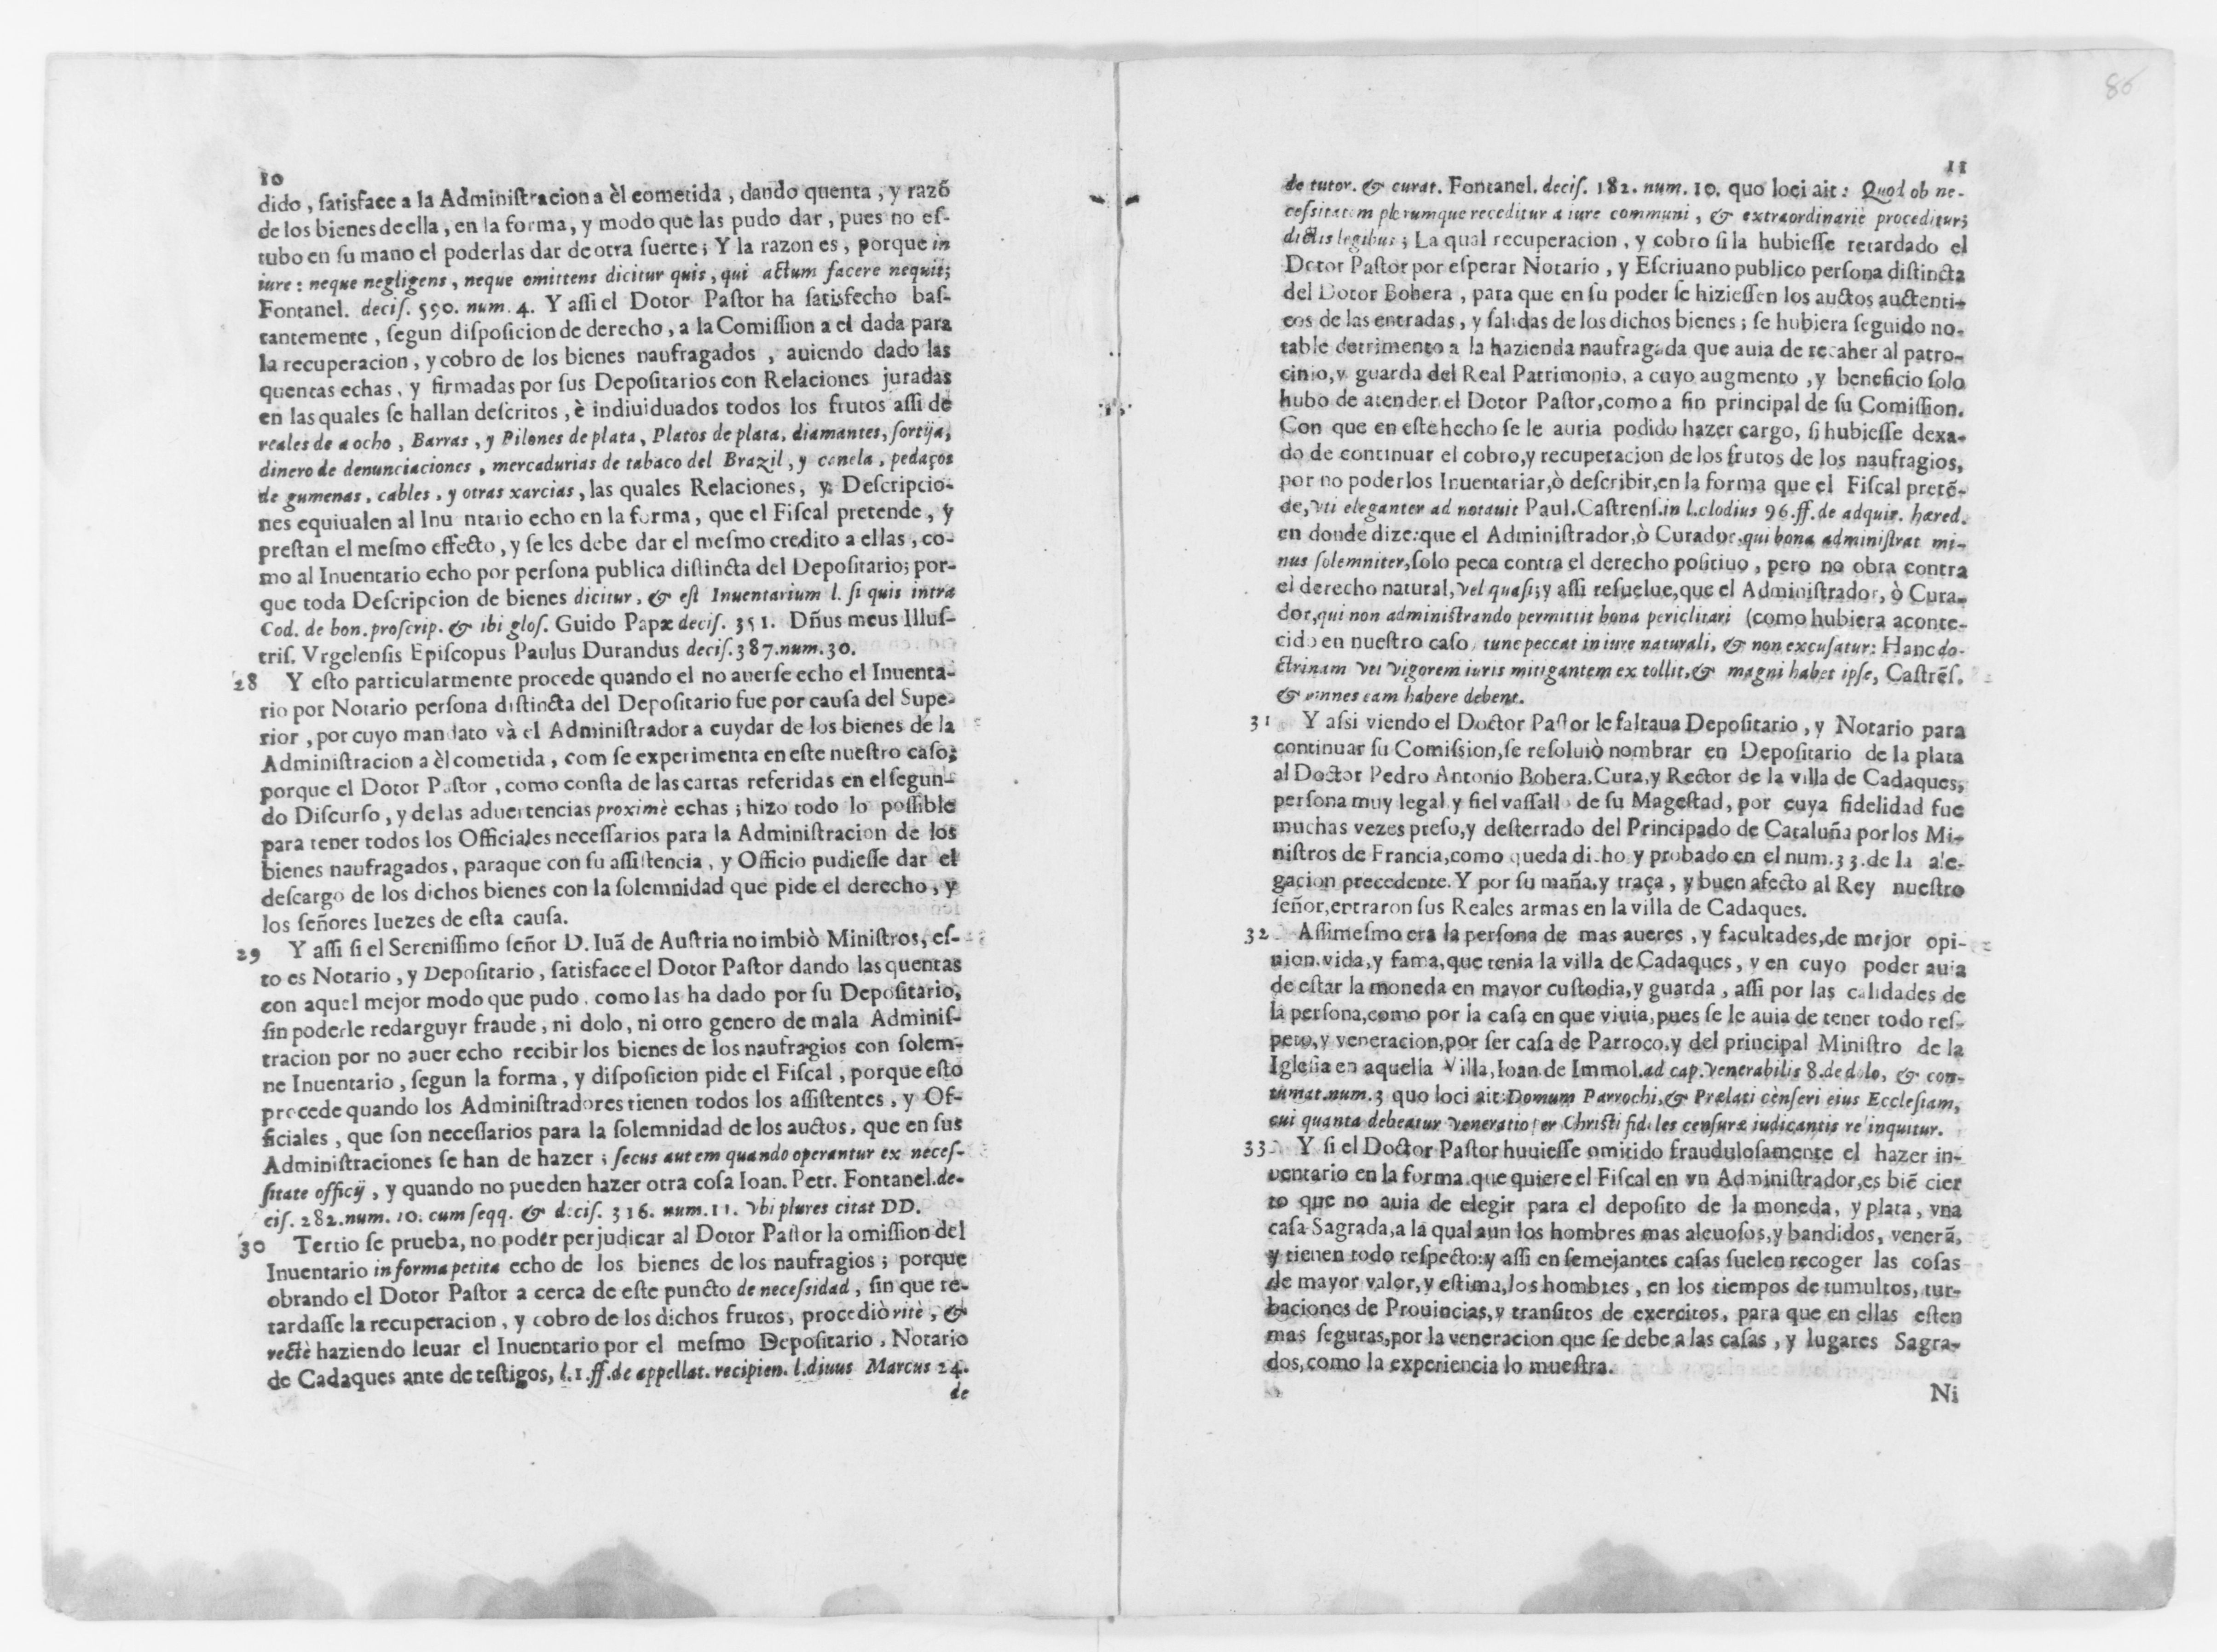 10
dido, satisface a la Administracion a èl cometida, dando quenta, y razõ
de los bienes de ella, en la forma, y modo que las pudo dar, pues no es-
tubo en su mano el poderlas dar de otra suerte; Y la razon es, porque in
iure: neque negligens, neque omittens dicitur quis, qui actum facere nequit;
Fontanel. decis. 590. num. 4. Y assi el Dotor Pastor ha satisfecho bas-
tantemente, segun disposicion de derecho, a la Comission a el dada para
la recuperacion, y cobro de los bienes naufragados, auiendo dado las
quentas echas, y firmadas por sus Depositarios con Relaciones juradas
en las quales se hallan descritos, è indiuiduados todos los frutos assi de
reales de a ocho, Barras, y Pilones de plata, Platos de plata, diamantes, sortija,
dinero de denunciaciones, mercadurias de tabaco del Brazil, y canela, pedaços
de gumenas, cables, y otras xarcias, las quales Relaciones, y Descripcio-
nes equiualen al Inu ntario echo en la forma, que el Fiscal pretende, y
prestan el mesmo effecto, y se les debe dar el mesmo credito a ellas, co-
mo al Inuentario echo por persona publica distincta del Depositario; por-
que toda Descripcion de bienes dicitur, & est Inuentarium l. si quis intra
Cod. de bon. proscrip. & ibi glos. Guido Papæ decis. 351. Dñus meus Illus-
tris. Vrgelensis Episcopus Paulus Durandus decis. 387. num. 30.
28 Y esto particularmente procede quando el no auerse echo el Inuenta-
rio por Notario persona distincta del Depositario fue por causa del Supe-
rior, por cuyo mandato và el Administrador a cuydar de los bienes de la
Administracion a èl cometida, com se experimenta en este nuestro caso;
porque el Dotor Pastor, como consta de las cartas referidas en el segun-
do Discurso, y de las aduertencias proximè echas; hizo todo lo possible
para tener todos los Officiales necessarios para la Administracion de los
bienes naufragados, para que con su assistencia, y Officio pudiesse dar el
descargo de los dichos bienes con la solemnidad que pide el derecho, y
los señores Iuezes de esta causa.
29 Y assi si el Serenissimo señor D. Iuã de Austria no imbiò Ministros, es-
to es Notario, y Depositario, satisface el Dotor Pastor dando las quentas
con aquel mejor modo que pudo, como las ha dado por su Depositario,
sin poderle redarguyr fraude, ni dolo, ni otro genero de mala Adminis-
tracion por no auer echo recibir los bienes de los naufragios con solem-
ne Inuentario, segun la forma, y disposicion pide el Fiscal, porque esto
procede quando los Administradores tienen todos los assistentes, y Of-
ficiales, que son necessarios para la solemnidad de los auctos, que en sus
Administraciones se han de hazer; secus autem quando operantur ex neces-
sitate officij, y quando no pueden hazer otra cosa Ioan. Petr. Fontanel. de-
cis. 282. num. 10. cum seqq. & decis. 316. num. 11. Vbi plures citat DD.
30 Tertio se prueba, no poder perjudicar al Dotor Pastor la omission del
Inuentario in forma petita echo de los bienes de los naufragios; porque
obrando el Dotor Pastor a cerca de este puncto de necessidad, sin que re-
tardasse la recuperacion, y cobro de los dichos frutos, procediò ritè, &
rectè haziendo leuar el Inuentario por el mesmo Depositario, Notario
de Cadaques ante de testigos, l. 1. ff. de appellat. recipien. l. diuus Marcus 24.
de
86
11
de tutor. & curat. Fontanel. decis. 182. num. 10. quo loci ait: Quod ob ne-
cessitatem plerumque receditur a iure communi, & extraordinariè proceditur;
dictis legibus; La qual recuperacion, y cobro si la hubiesse retardado el
Dotor Pastor por esperar Notario, y Escriuano publico persona distincta
del Dotor Bohera, para que en su poder se hiziessen los auctos auctenti-
cos de las entradas, y salidas de los dichos bienes; se hubiera seguido no-
table detrimento a la hazienda naufragada que auia de recaher al patro-
cinio, y guarda del Real Patrimonio, a cuyo augmento, y beneficio solo
hubo de atender el Dotor Pastor, como a fin principal de su Comission.
Con que en este hecho se le auria podido hazer cargo, si hubiesse dexa-
do de continuar el cobro, y recuperacion de los frutos de los naufragios,
por no poderlos Inuentariar, ò describir, en la forma que el Fiscal pretẽ-
de, Vti eleganter ad notauit Paul. Castrens. in l. clodius 96. ff. de adquir. hæred.
en donde dize: que el Administrador, ò Curador, qui bona administrat mi-
nus solemniter, solo peca contra el derecho positiuo, pero no obra contra
el derecho natural, Vel quasi; y assi resuelue, que el Administrador, ò Cura-
dor, qui non administrando permittit bona periclitari (como hubiera aconte-
cido en nuestro caso, tunc peccat in iure naturali, & non excusatur: Hanc do-
ctrinam Vti Vigorem iuris mitigantem ex tollit, & magni habet ipse, Castrẽs.
& omnes eam habere debent.
31 Y assi viendo el Doctor Pastor le faltaua Depositario, y Notario para
continuar su Comission, se resoluiò nombrar en Depositario de la plata
al Doctor Pedro Antonio Bohera, Cura, y Rector de la villa de Cadaques,
persona muy legal y fiel vassallo de su Magestad, por cuya fidelidad fue
muchas vezes preso, y desterrado del Principado de Cataluña por los Mi-
nistros de Francia, como queda dicho y probado en el num. 33. de la ale-
gacion precedente. Y por su maña, y traça, y buen afecto al Rey nuestro
señor, entraron sus Reales armas en la villa de Cadaques.
32 Assimesmo era la persona de mas aueres, y facultades, de mejor opi-
nion, vida, y fama, que tenia la villa de Cadaques, y en cuyo poder auia
de estar la moneda en mayor custodia, y guarda, assi por las calidades de
la persona, como por la casa en que viuia, pues se le auia de tener todo res-
peto, y veneracion, por ser casa de Parroco, y del principal Ministro de la
Iglesia en aquella Villa, Ioan. de Immol. ad cap. Venerabilis 8. de dolo, & con-
tumat. num. 3 quo loci ait: Domum Parrochi, & Prælati cènseri eius Ecclesiam,
cui quanta debeatur Veneratio per Christi fideles censuræ iudicantis relinquitur.
33 Y si el Doctor Pastor huuiesse omitido fraudulosamente el hazer in-
ventario en la forma que quiere el Fiscal en vn Administrador, es biẽ cier
to que no auia de elegir para el deposito de la moneda, y plata, vna
casa Sagrada, a la qual aun los hombres mas aleuosos, y bandidos, venerã,
y tienen todo respecto: y assi en semejantes casas suelen recoger las cosas
de mayor valor, y estima, los hombres, en los tiempos de tumultos, tur-
baciones de Prouincias, y transitos de exercitos, para que en ellas esten
mas seguras, por la veneracion que se debe a las casas, y lugares Sagra-
dos, como la experiencia lo muestra.
Ni